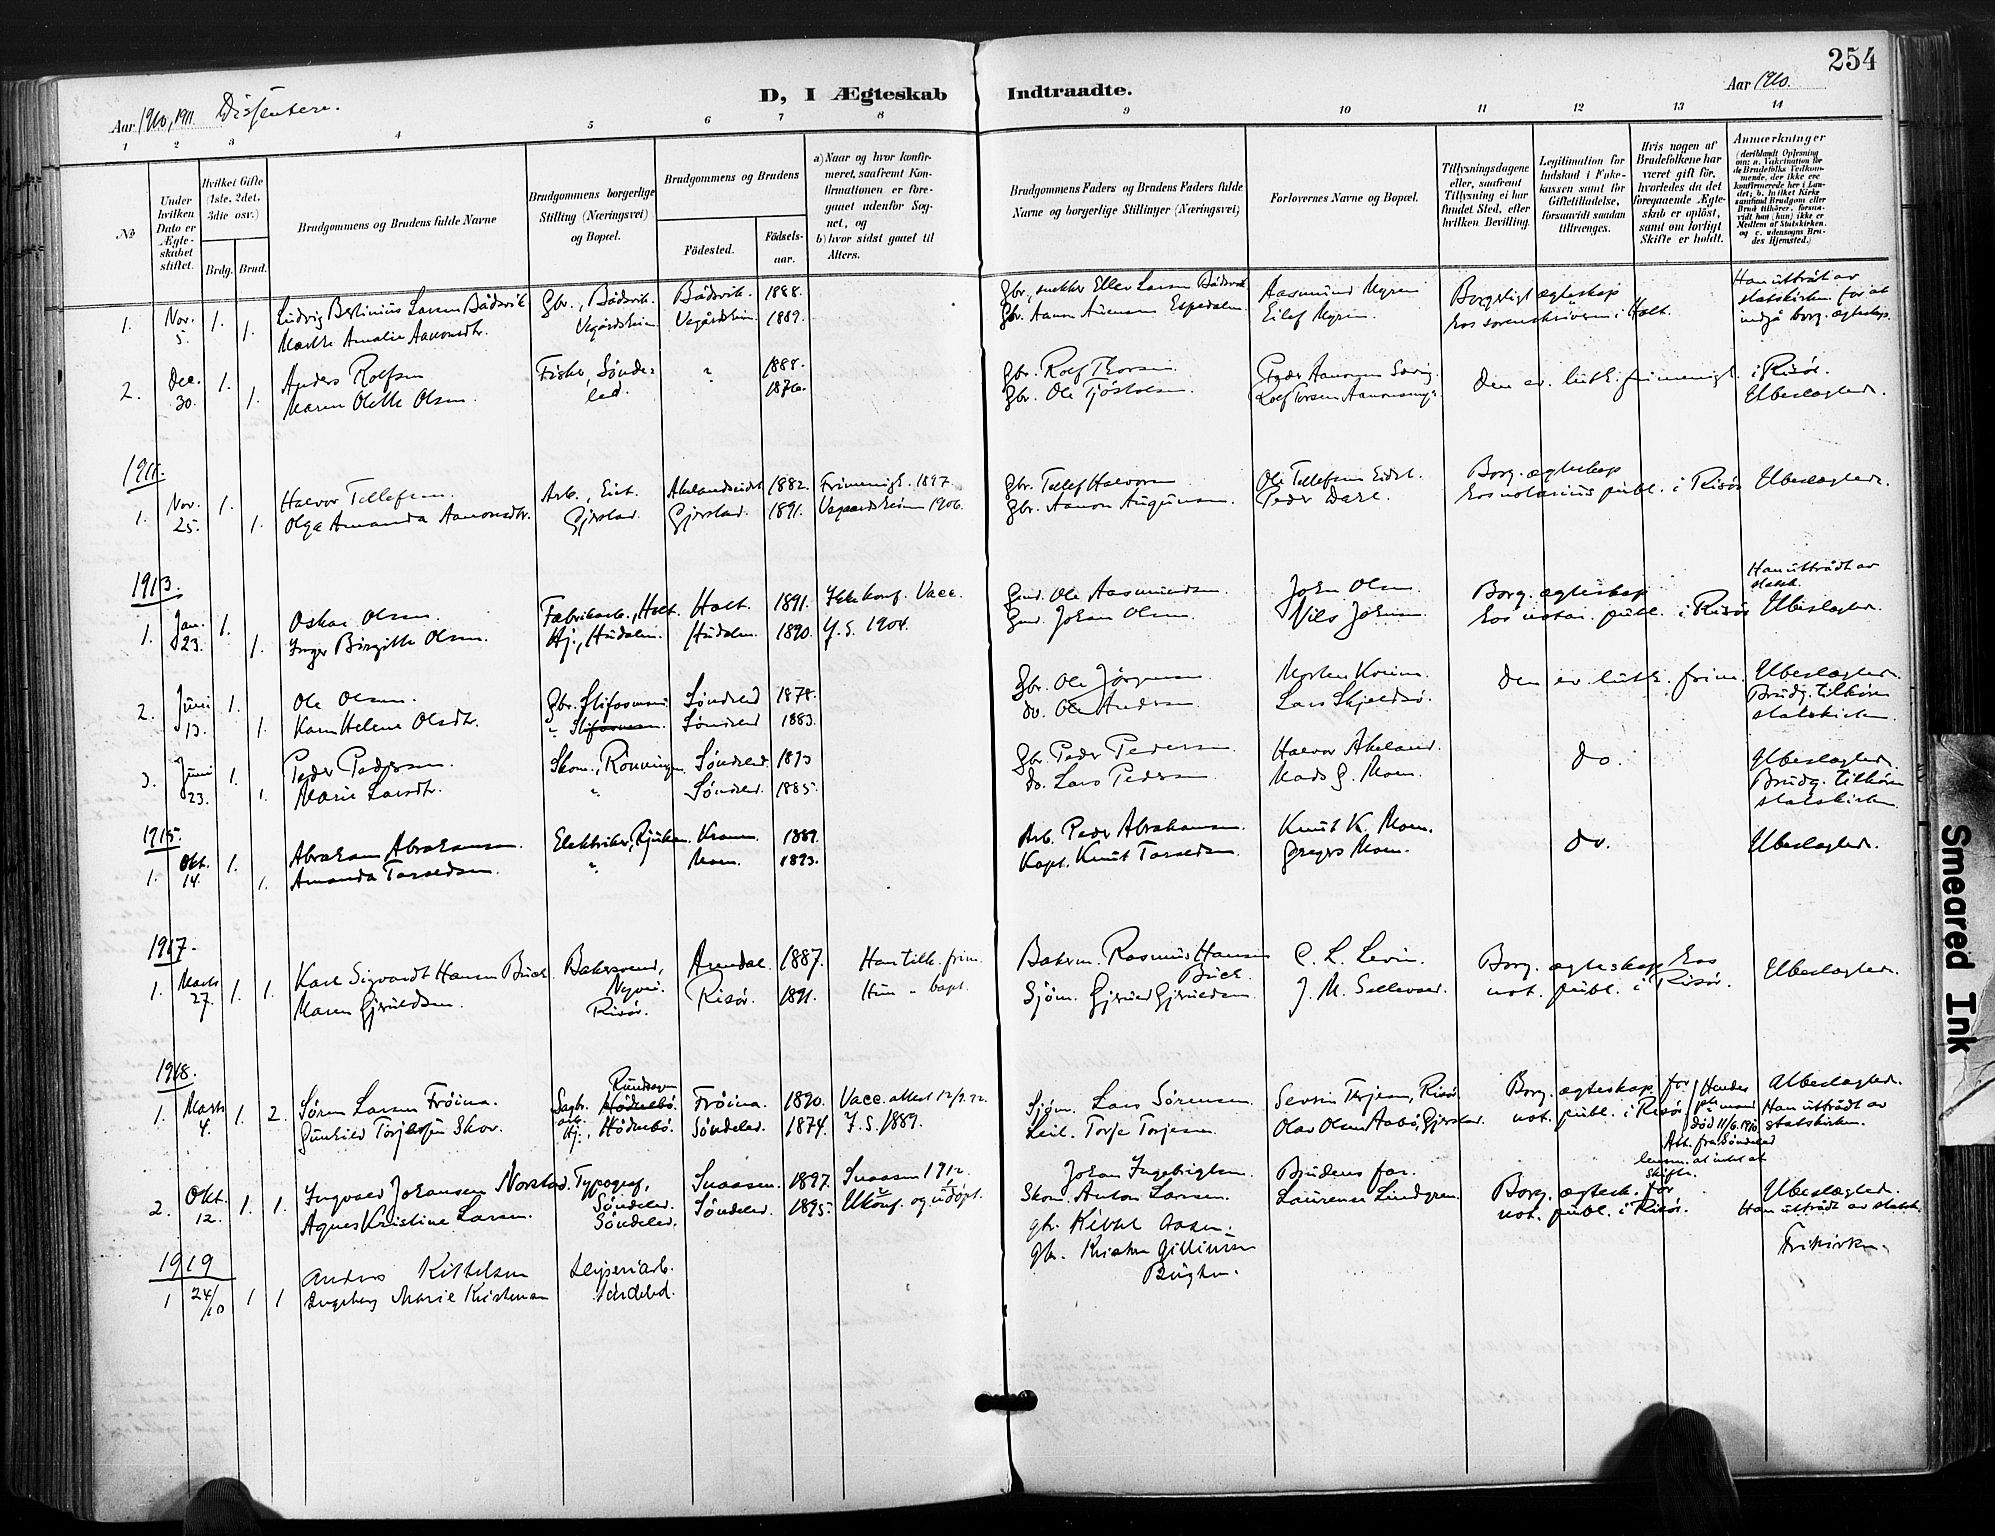 254
Aar 1910, 1911 Dissentere.
D, I Ægteskab Indtraadte.
Aar 1910.
1 2 3 4 5 6 7 8 9 10 11 12 13 14
№
Under hvilken Dato er Ægteskabet stiftet.
Hvilket Gifte (1ste, 2det, 3die osv.)
Brdg. Brud.
Brudgommens og Brudens fulde Navne
Brudgommens borgerlige Stilling (Næringsvei) og Bopæl.
Brudgommens og Brudens
Fødested.
Fødselsaar.
a) Naar og hvor konfirmeret, saafremt Konfirmationen er foregaaet udenfor Sognet, og
b) hvor sidst gaaet til Alters.
Brudgommens Faders og Brudens Faders fulde Navne og borgerlige Stillinger (Næringsvei)
Forlovernes Navne og Bopæl.
Tillysningsdagene eller, saafremt Tillysning ei har fundet Sted, efter hvilken Bevilling.
Legitimation for Indskud i Enkekassen samt for Giftetilladelse, forsaavidt saadan tiltrænges.
Hvis nogen af Brudefolkene har været gift før, hvorledes da det foregaaende Ægteskab er opløst, samt om lovligt Skifte er holdt.
Anmærkninger (deriblandt Oplysning om: a. Vakcination for de Brudefolks Vedkommende, der ikke ere konfirmerede her i Landet; b. hvilket Kirkesamfund Brudgom eller Brud tilhører, forsaavidt han (hun) ikke er Medlem af Statskirken, og c. udensogns Brudes Hjemsted.)
1. Nov. 5. 1. 1.
Ludvig Bertinius Larsen Bådsvik Gbr., Bådsvik. Bådsvik. 1888.
Marthe Amalie Aanonsdtr. Vegårdsheim Vegårdsheim 1889.
Gbr., snekker Ellef Larsen Bådsvik Aasmund Myren
Gbr. Aanon Espedalen Eilef Myren.
Borgerligt ægteskap hos sorenskriveren i Holt.
Han uttrådt av statskirken for at indgå borg. ægteskap.
2. Dec. 30. 1. 1.
Anders Rolfsen Fisker, Søndeled. " 1888.
Maren Olette Olsen 1876.
Gbr. Rolf Thorsen
Gbr. Ole
Den ev. luth. frimenigh. i Risør.
Ubeslægted.
1911.
1. Nov. 25. 1. 1.
Halvor Tellefsen. Arb., Eidet. Akelandseidet 1882. Frimenigh. 1897
Olga Amanda Aanonsdtr. Gjerstad. Gjerstad. 1891. Vegaardsheim 1906.
Gbr. Tellef Halvorsen Ole Tellefsen Eidet.
Gbr. Aanon Peder Dale.
Borg. ægteskap hos notarius publ. i Risør Ubeslægted.
1913.
1. Jan. 23. 1. 1.
Oskar Olsen Fabrikarb., Holt. Holt. 1891. Ikke konf. Vacc.
Inger Birgitte Olsen. Hj., Hudalen. Hudalen. 1890. Y. S. 1904.
Gmd. Ole Aasmundsen. John Olsen
Gmd. Johan Olsen Nils Johnsen
Borg. ægteskap hos notar. publ. i Risør
Han utträdt av statsk.
Ubeslægted.
2. Juni 13. 1. 1.
Ole Olsen. Gbr. Søndeled 1878.
Karen Helene Olsdtr. Søndeled 1883.
Gbr. Ole Jørgensen
do. Ole Andersen Lars Skjeldsø.
Den ev. luth. frim.
Ubeslægted. Brudg. tilhører statskirken.
3. Juni 23. 1. 1.
Peder Pedersen. Skom., Rønningen Søndeled. 1893
Marie Larsdtr. " Søndeled. 1885.
Gbr. Peder Pedersen Halvor Akeland.
do. Lars Pedersen Mads G. Moen.
do. Ubeslægted. Brudg. tilhører statskirken.
1915.
1. Okt. 14. 1. 1.
Abraham Abrahamsen. Elektriker, Rjukan. 1889.
Amanda Taraldsen. " Moen. 1893.
Arb. Peder Abrahamsen. Knut K. Moen.
Kapt. Knut Taraldsen. Gregers Moen.
do. Ubeslægted.
1917.
1. Marts 27. 1. 1.
Karl Sigvardt Hansen Buch. Bakersvend, Arendal. 1887. Han tilh. frim.
Maren Gjeruldsen. Nyvei. Risør. Risør. 1891. Hun " bapt.
Bakerm. Rasmus Hansen Buch C. L. Levin.
Sjøm. Gjeruld Gjeruldsen J. M. Sellevold.
Borg. ægteskap hos not. publ. i Risør. Ubeslægted.
1918.
1. Marts 4. 1. 2.
Søren Larsen Frøina. Frøina. 1890. Vacc. attest
Gunhild Torjesen Skor. Hj., Hødnebø. Søndeled. 1874. Y. S. 1889.
Sjøm. Lars Sørensen Severin Torjesen, Risør
Leil. Torje Torjesen. Olav Olsen Aabø, Gjerstad.
Borg. ægteskap for not. publ. i Risør.
Hendes mand død 11/6 1910 Att. fra Søndeled lensm. at intet at skifte.
Ubeslægted. Han utträdt av statskirken.
2. Okt. 12. 1. 1.
Ingvald Johansen Norstad. Typograf, Snaasen. 1897. Snaasen 1912
Agnes Kristine Larsen. Søndeled. Søndeled. Søndeled. 1895. Ukonf. og udøpt.
Johan Ingebrigtsen Brudens far.
Skom. Anton Larsen. Laurense Lindgren.
Borg. ægtesk. for not. publ. i Risør.
Ubeslægted. Han utträdt av statsk.
1919
1 24/10 1 1
Anders Kittelsen Søndeled.
Ingeborg Marie Kristensen
gbr. Kittel Aasen.
gbr. Kristen
Frikirken.
Smeared Ink